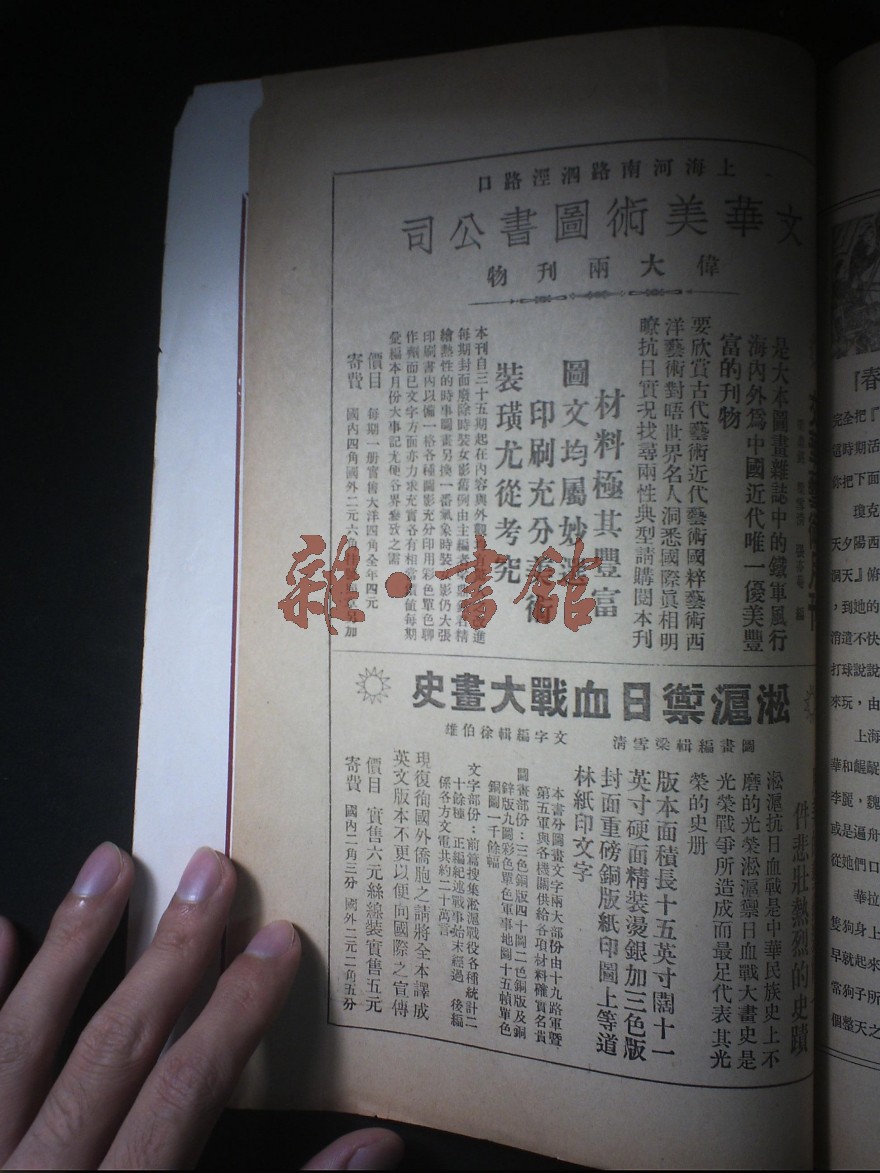 上海河南路泗涇路口
文華美術圖書公司
偉大兩刊物
是大本圖畫雜誌中的鐵軍風行
海內外爲中國近代唯一優美豐
富的刊物
要欣賞古代藝術近代藝術國粹藝術西
洋藝術對唔世界名人洞悉國際眞相明
瞭抗日實况找尋兩性典型請購閱本刊
材料極其豐富
圖文均屬妙選
印刷充分美術
裝璜尤從考究
本刊自三十五期起在內容與外觀改進
每期封面廢除時裝女影舊例由主編者精
繪熱性的時事圖畫另換一番氣象時裝影仍大張
印刷書內以備一格各種圖影充分印用彩色單色聊
作劑而已文字方面亦力求充實各有相當做每期
彙編本月份大事記尤便各界參攷之需
價目 每期一册實售大洋四角全年四元
寄費 國內四角國外二元六角加
淞滬禦日血戰大畫史
圖畫編輯梁雪清 文字編輯徐伯雄
件悲壯熱烈的史蹟
淞滬抗日血戰是中華民族史上不
磨的光榮淞滬禦日血戰大畫史是
光榮戰爭所造成而最足代表其光
榮的史册
版本面積長十五英寸闊十一
英寸硬面精裝燙銀加三色版
封面重磅銅版紙印圖上等道
林紙印文字
本書分圖畫文字兩大部份由十九路軍曁
第五軍與各機關供給各項材料確實名貴
圖畫部份：三色銅版四十圖二色銅版及銅
鋅版九圖彩色單色軍事地圖十五幀單色
銅圖一千餘幅
文字部份：前篇搜集淞滬戰役各種統計二
十餘種 正編紀述戰事始末經過 後編
係各方文電共約二十萬言
現復徇國外僑胞之請將全本譯成
英文版本不更以便向國際之宣傳
價目 實售六元絲線裝實售五元
寄費 國內二角三分 國外二元二角五分
雜·書館
「春
完全把『
這時期活
你把下面
瓊克
天夕陽西
洞天』俯
，到她的
消遣不快
打球說說
來玩，由
上海
華和齷齪
李麗，魏
或是遍舟
從她們口
華拉
雙狗身上
早就起來
當狗子所
個整天之